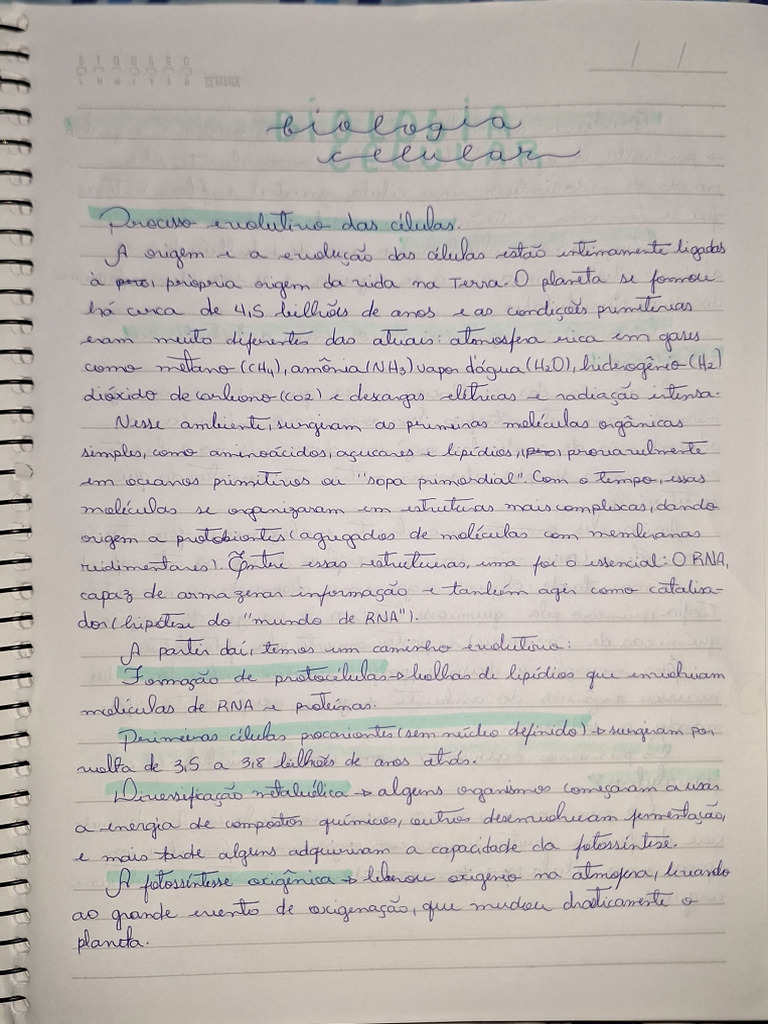 biologia
celular
Processo evolutivo das células.
A origem e a evolução das células estão intimamente ligadas
à própria origem da vida na Terra. O planeta se formou
há cerca de 4,5 bilhões de anos e as condições primitivas
eram muito diferentes das atuais: atmosfera rica em gases
como metano (CH4), amônia (NH3) vapor d'água (H2O), hidrogênio (H2)
dióxido de carbono (CO2) e descargas elétricas e radiação intensa.
Nesse ambiente, surgiram as primeiras moléculas orgânicas
simples, como aminoácidos, açucares e lipídios, provavelmente
em oceanos primitivos ou "sopa primordial". Com o tempo, essas
moléculas se organizaram em estruturas mais complexas, dando
origem a protobiontes (agregados de moléculas com membranas
rudimentares). Entre essas estruturas, uma foi o essencial: O RNA,
capaz de armazenar informação e também agir como catalisa-
dor (hipótese do "mundo de RNA").
A partir daí, temos um caminho evolutivo:
Formação de protocélulas → bolhas de lipídios que envolviam
moléculas de RNA e proteínas.
Primeiras células procariontes (sem núcleo definido) → surgiram por
volta de 3,5 a 3,8 bilhões de anos atrás.
Diversificação metabólica → alguns organismos começaram a usar
a energia de compostos químicos, outros desenvolveram fermentação,
e mais tarde alguns adquiriram a capacidade da fotossíntese.
A fotossíntesse oxigênica → liberou oxigênio na atmofera, levando
ao grande evento de oxigenação, que mudou drasticamente o
planeta.